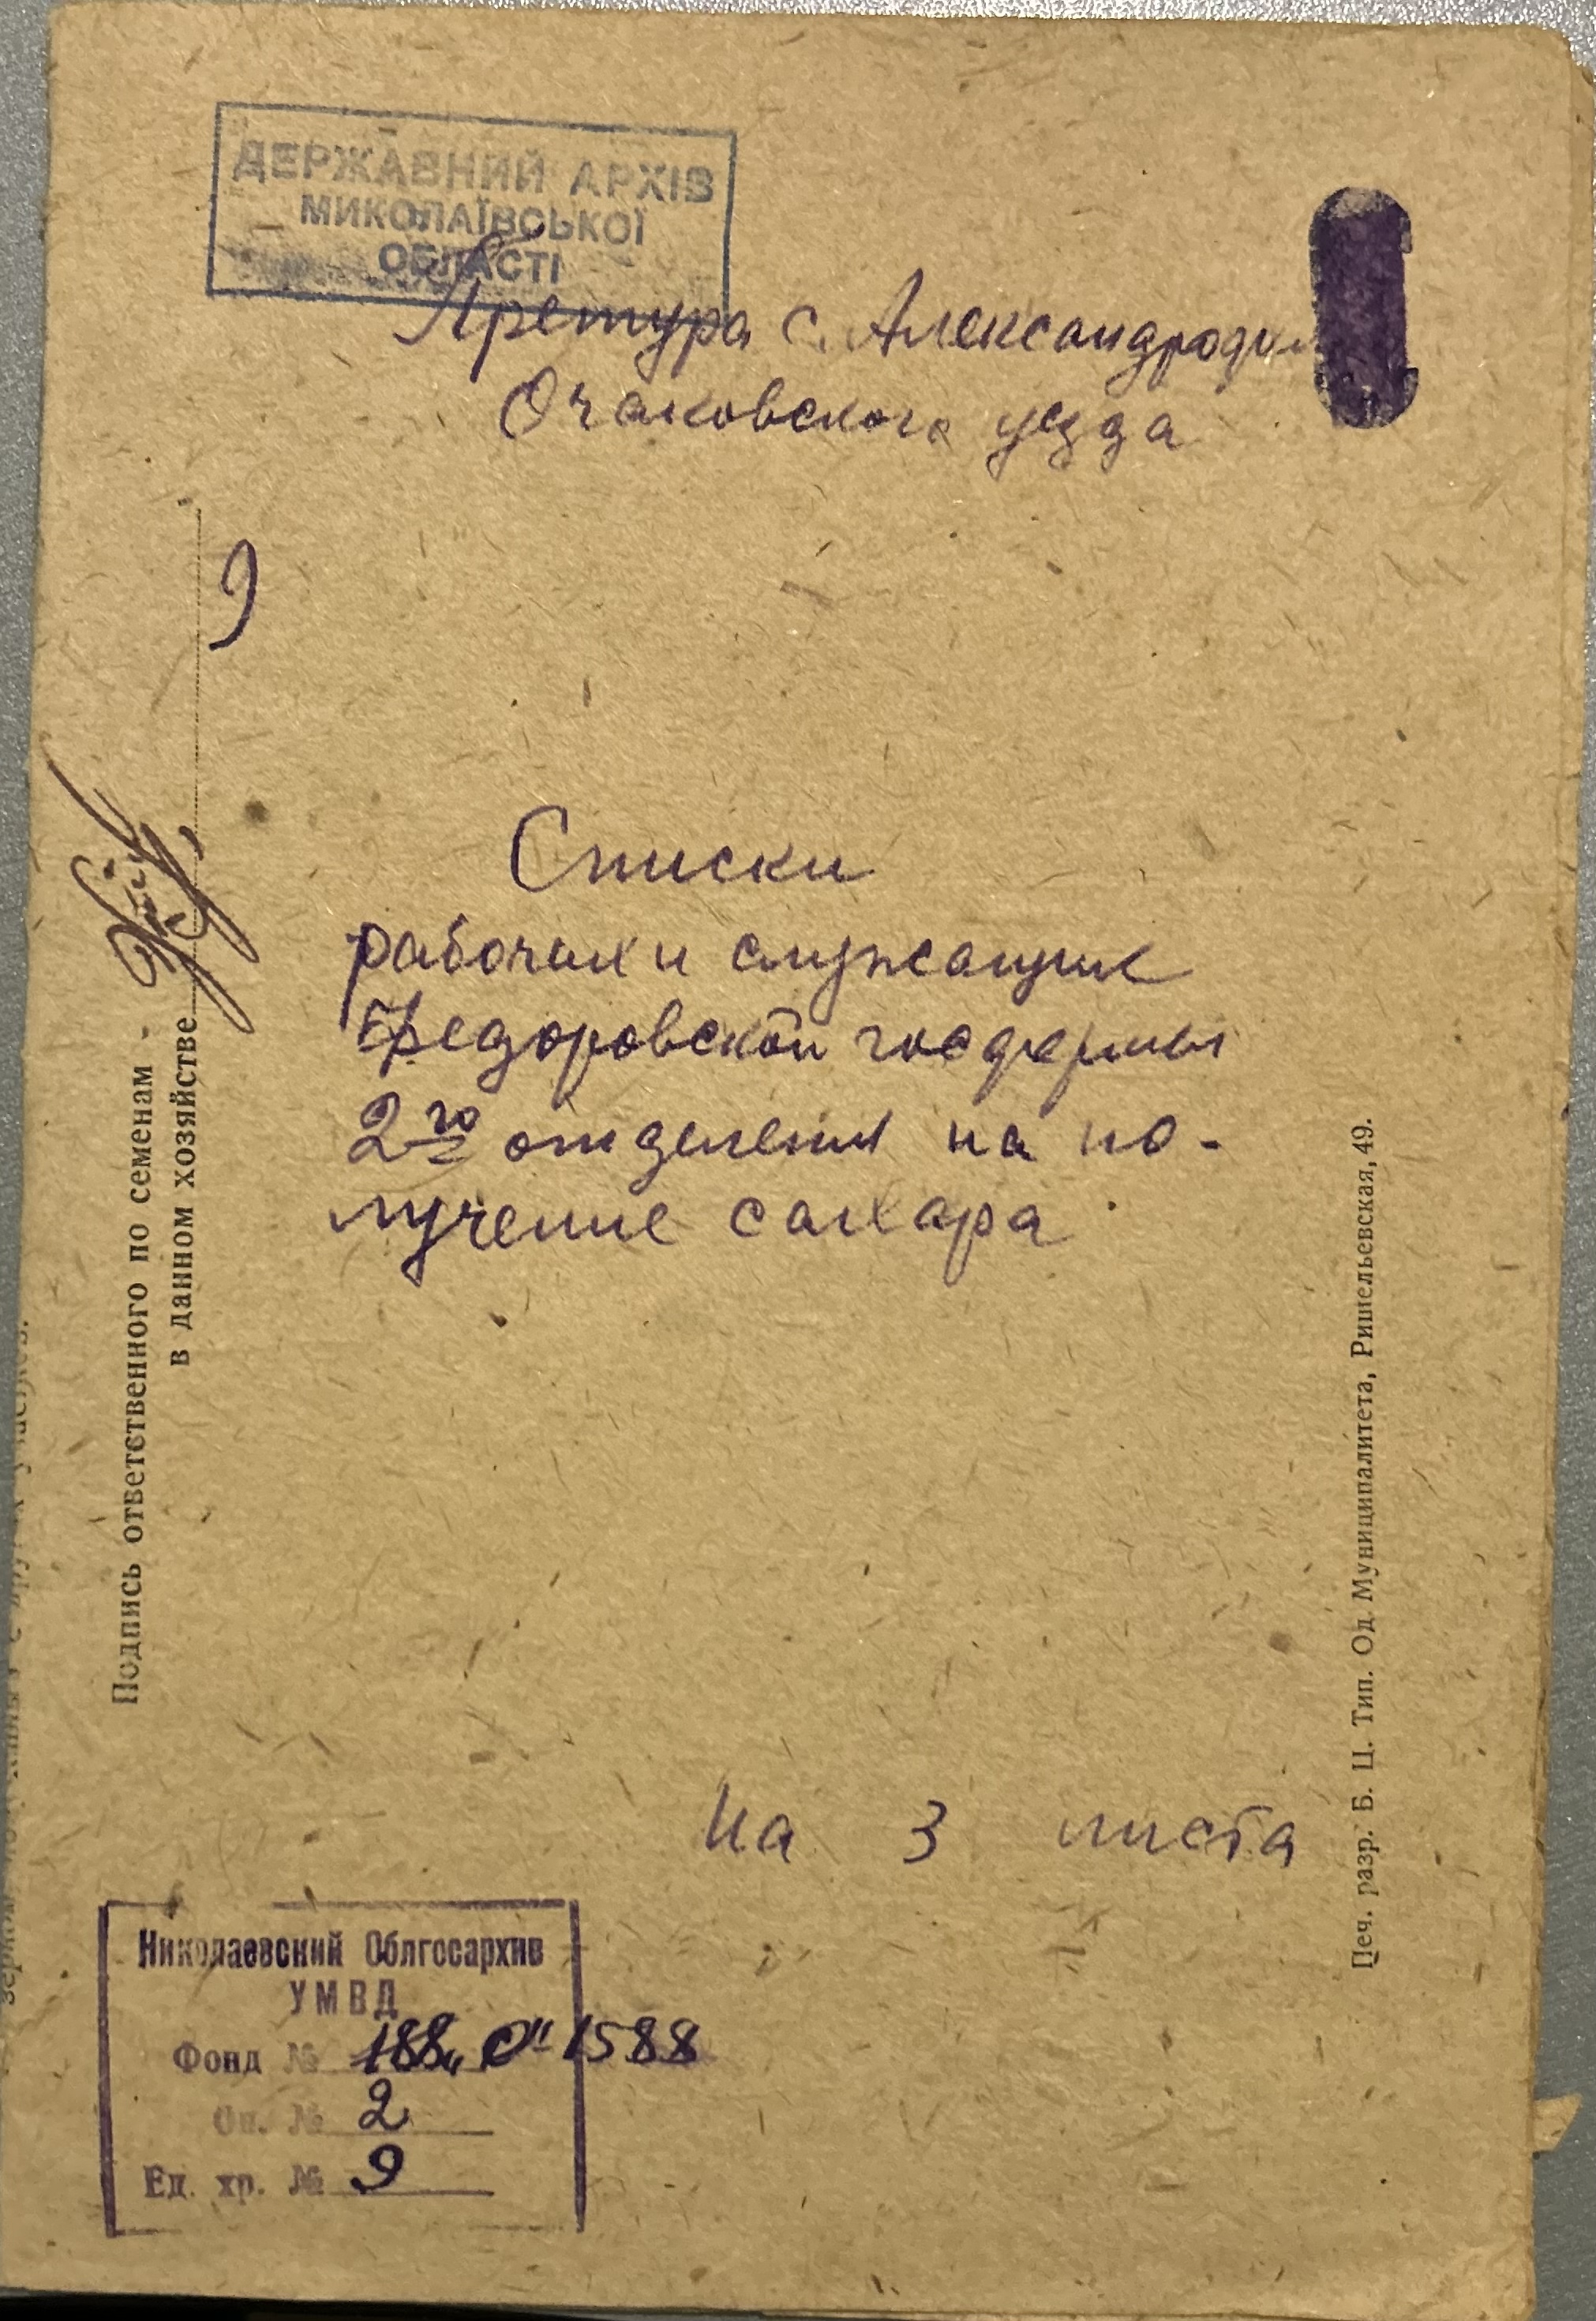 ДЕРЖАВНИЙ АРХІВ
МИКОЛАЇВСЬКОЇ
ОБЛАСТІ
Претура с. Александро
Очаковского уезда
9
Списки
рабочих и служащих
Федоровской госфермы
2го отделения на по-
лучение сахара
На 3 листа
Подпись ответственного по семенам
в данном хозяйстве
Печ. разр. Б. Ц. Тип. Од Муниципалитета, Ришельевская, 49.
Николаевский Облгосархив
УМВД
Фонд № 188 „С" 1588
Оп. № 2
Ед. хр. № 9